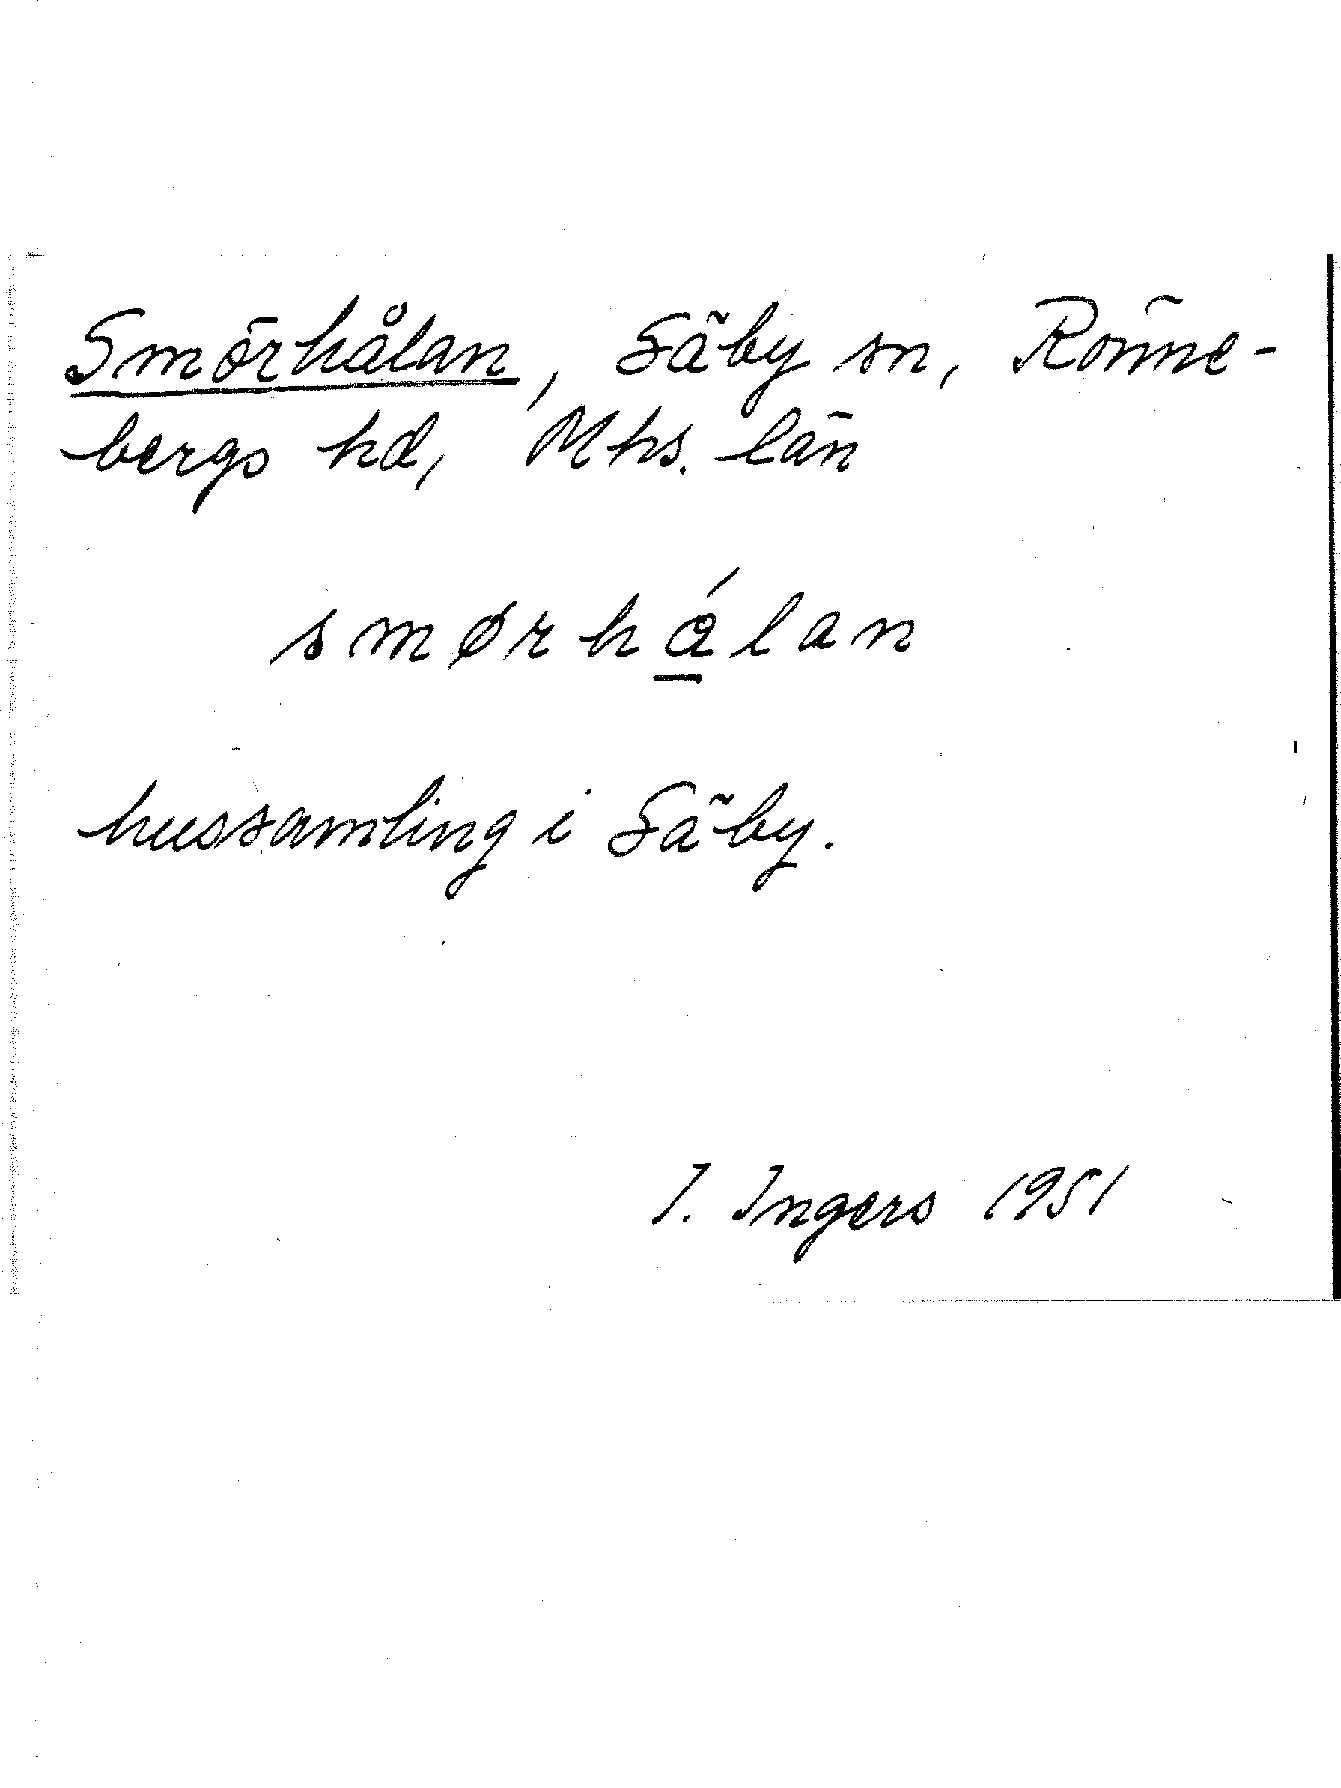 Smörhålan, Säby sn, Rönne-
bergs hd, Mhs. län
smørhålan
hussamling i Säby.
I. Ingers 1951